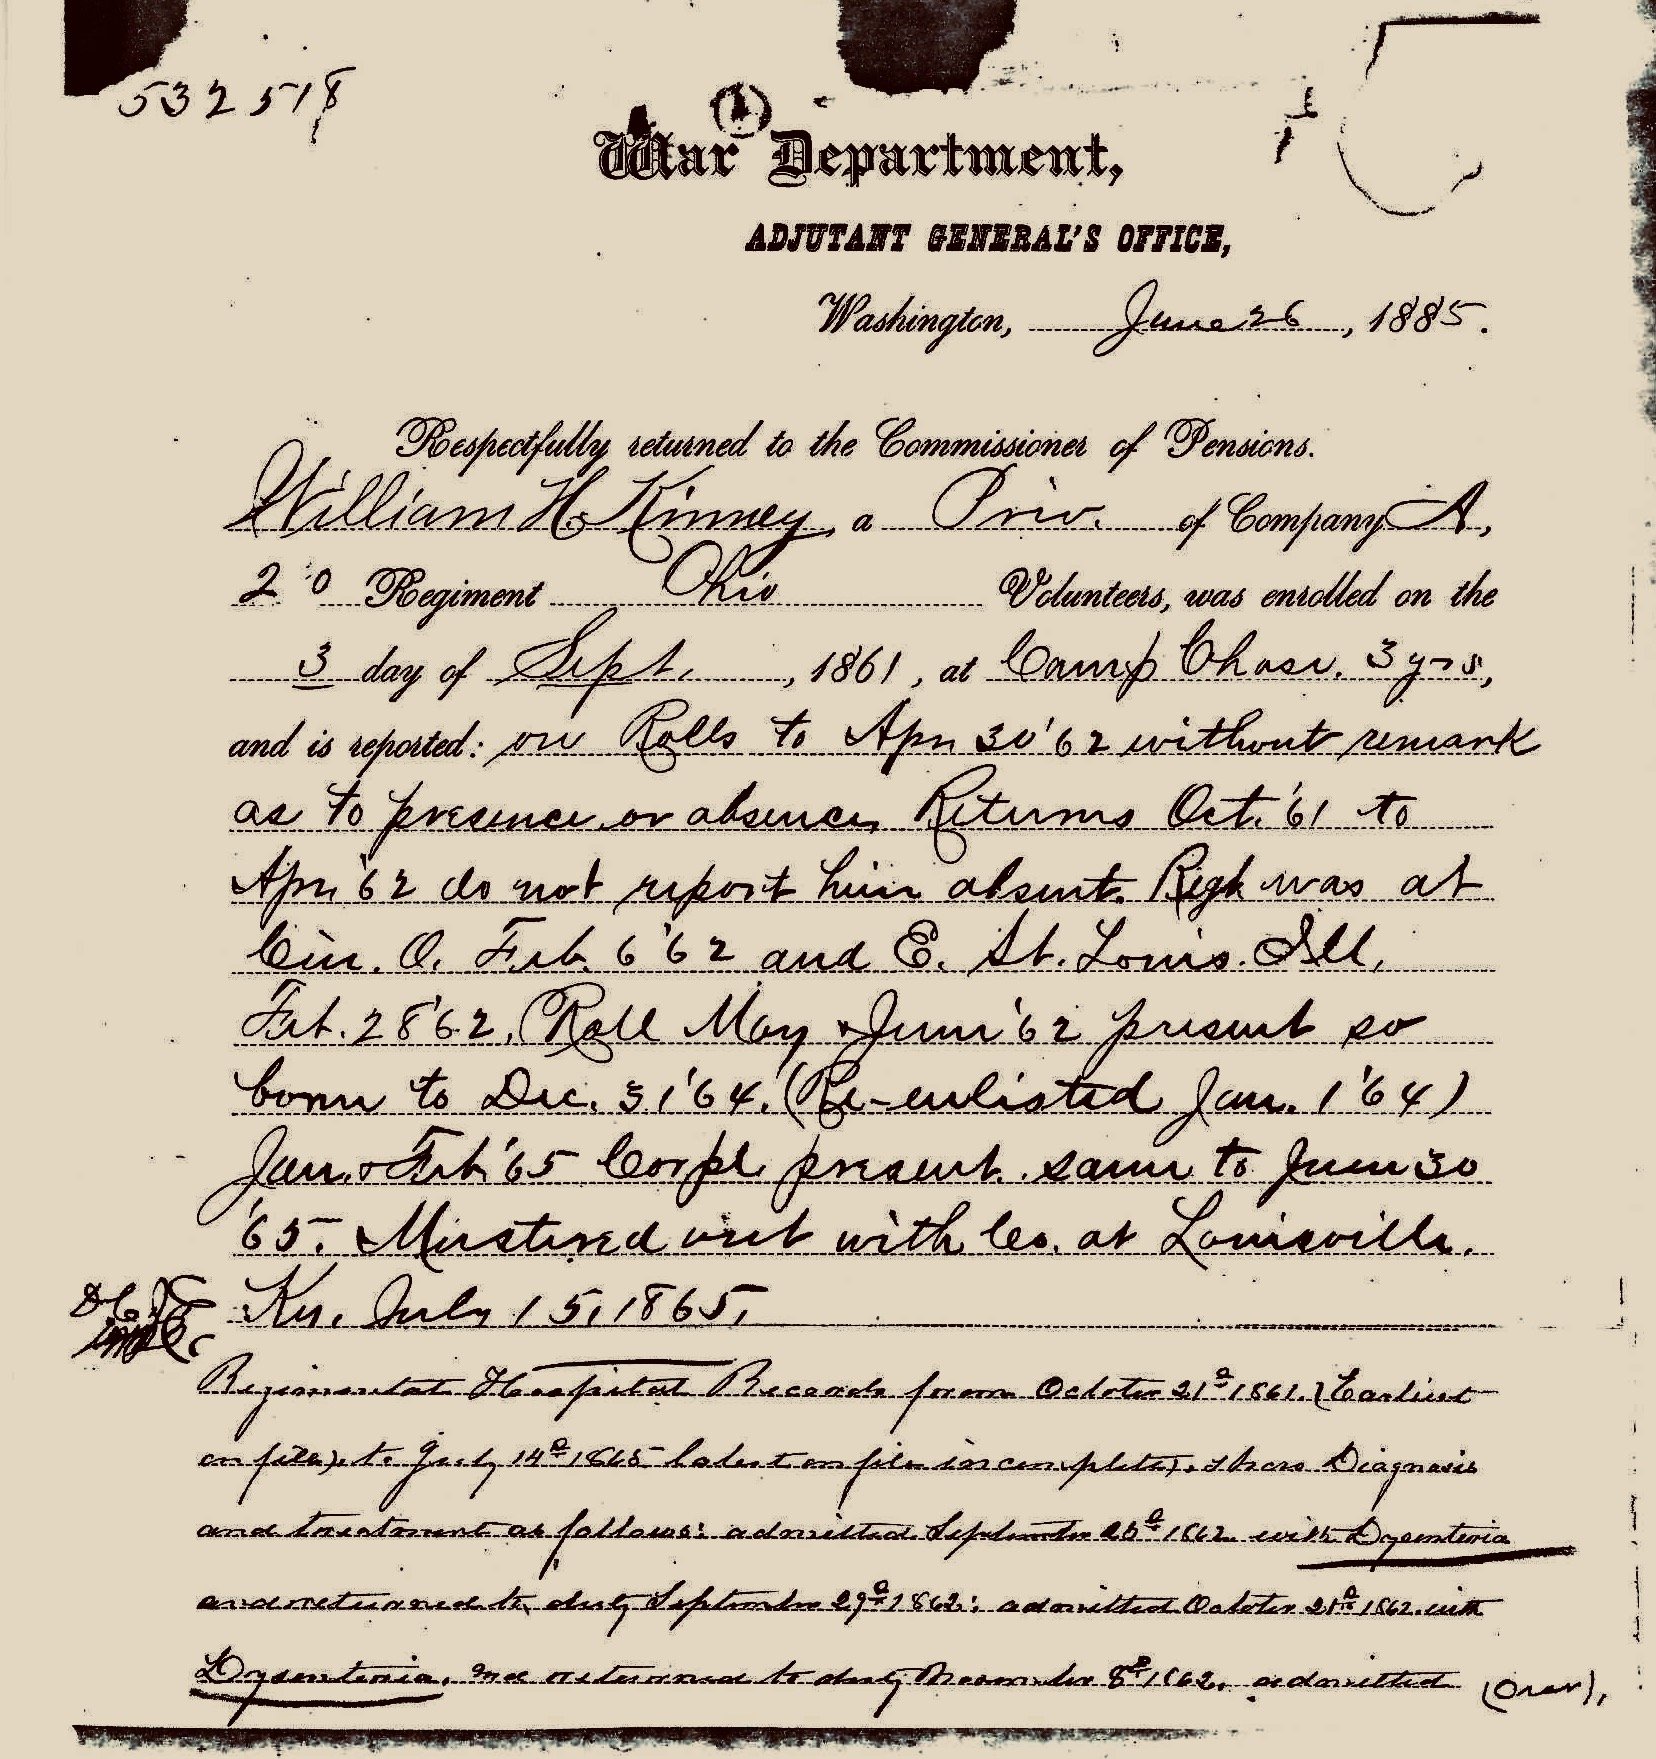 532518
War Department,
ADJUTANT GENERAL'S OFFICE,
Washington, June 26, 1885.
Respectfully returned to the Commissioner of Pensions.
William H. Kinney, a Priv. of Company A,
20 Regiment Ohio Volunteers, was enrolled on the
3 day of Sept., 1861, at Camp Chase. 3 yrs,
and is reported: on Rolls to Apr 30 '62 without remark
as to presence or absence, Returns Oct. '61 to
Apr '62 do not report him absent. Regt was at
Cin. O. Feb. 6 '62 and E. St. Louis. Ill.
Feb. 28 '62. (Roll May & June '62 present so
borne to Dec. 31 '64. (Re-enlisted Jan. 1 '64)
Jan. & Feb '65 Corpl present. same to June 30
'65. Mustered out with Co. at Louisville.
Ky. July 15, 1865.
Regimental Hospital Records from October 21st 1861. (Earliest
on file), to July 14th 1865 latest on file incomplete), show Diagnosis
and treatment as follows: admitted September 1862 with Dysenteria
and returned to duty September 29th 1862; admitted October 21st 1862. with
Dysenteria, and returned to duty November 8th 1862. admitted (over),